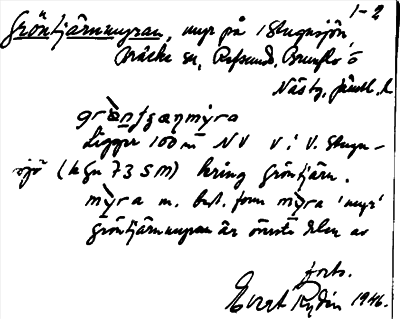 1-2
Gröntjärnmyran, myr på Stugusjön,
Bräcke sn, Refsund, Brunflo o
Näsby, Jämtl. l.
gròntʒæɳmýra
Ligger 100 m NV v i V. Stugu-
sjö (kgn 73 SM) kring Gröntjärn.
mỳra m. best. form mỳra 'myr'
Gröntjärnmyran är översta delen av
forts.
Evert Rydin 1946.